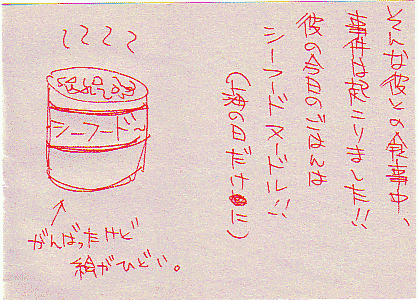 そんな彼との食事中、
事件は起こりました!!
彼の今日のごはんは
シーフードヌードル!!
(海の日だけに)
シーフード〜
がんばったけど
絵がひどい。